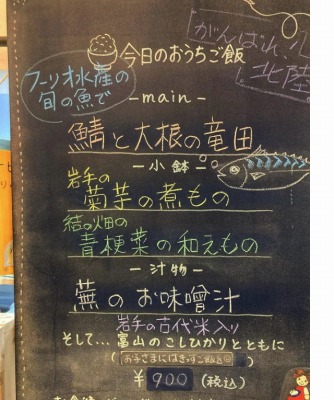 がんばれ
北陸
今日のおうちご飯
フーリ水産の
旬の魚で
-main-
鯖と大根の竜田
-小鉢-
岩手の
菊芋の煮もの
結の畑の
青梗菜の和えもの
-汁物-
蕪のお味噌汁
岩手の古代米入り
そして…富山のこしひかりとともに
¥900(税込)